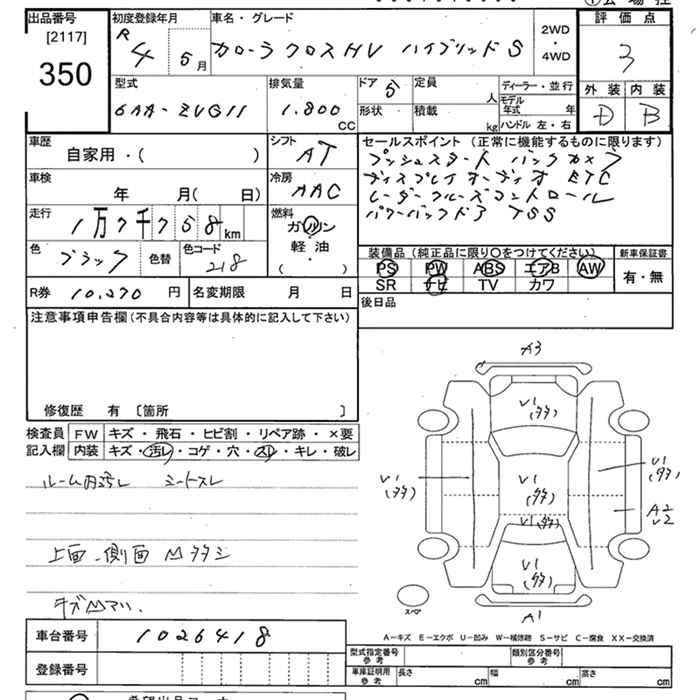 出品番号
[2117]
350
初度登録年月
R 4 5月
車名・グレード
カローラクロスHV ハイブリッドS
2WD
・
4WD
評価点
3
外装 内装
D B
型式
6AA-ZVG11
排気量
1.800
CC
ドア 5
形状
定員
人
積載
kg
ディーラー・並行
モデル年式 年
ハンドル 左・右
車歴
自家用・( )
シフト
AT
車検
年 月( 日)
冷房
AAC
走行
1万7千758km
燃料
ガソリン
軽・油
( ・ )
色
ブラック
色替
色コード
218
R券 10,270 円
名変期限 月 日
セールスポイント(正常に機能するものに限ります)
プッシュスタート バックカメラ
ディスプレイオーディオ ETC
レーダークルーズコントロール
パワーバックドア TSS
装備品(純正品に限り○をつけてください)
PS PW ABS エアB AW
SR ナビ TV カワ
新車保証書
有・無
後日品
注意事項申告欄(不具合内容等は具体的に記入して下さい)
修復歴 有 〔箇所 〕
検査員記入欄
FW キズ・飛石・ヒビ割・リペア跡・×要
内装 キズ・汚レ・コゲ・穴・スレ・キレ・破レ
ルーム内汚レ シートスレ
上面、側面 Mタタミ
キズMアリ、
A3
V1
(タタ)
V1
(タタ)
V1
(タタ)
V1
(タタ)
V1(タタ)
A2
V2
V1
(タタ)
スペア
A1
A-キズ E-エクボ U-凹み W-補修跡 S-サビ C-腐食 XX-交換済
車台番号 1026418
登録番号
型式指定番号
参考
類別区分番号
参考
車庫証明用
参考
長さ cm 幅 cm 高さ cm